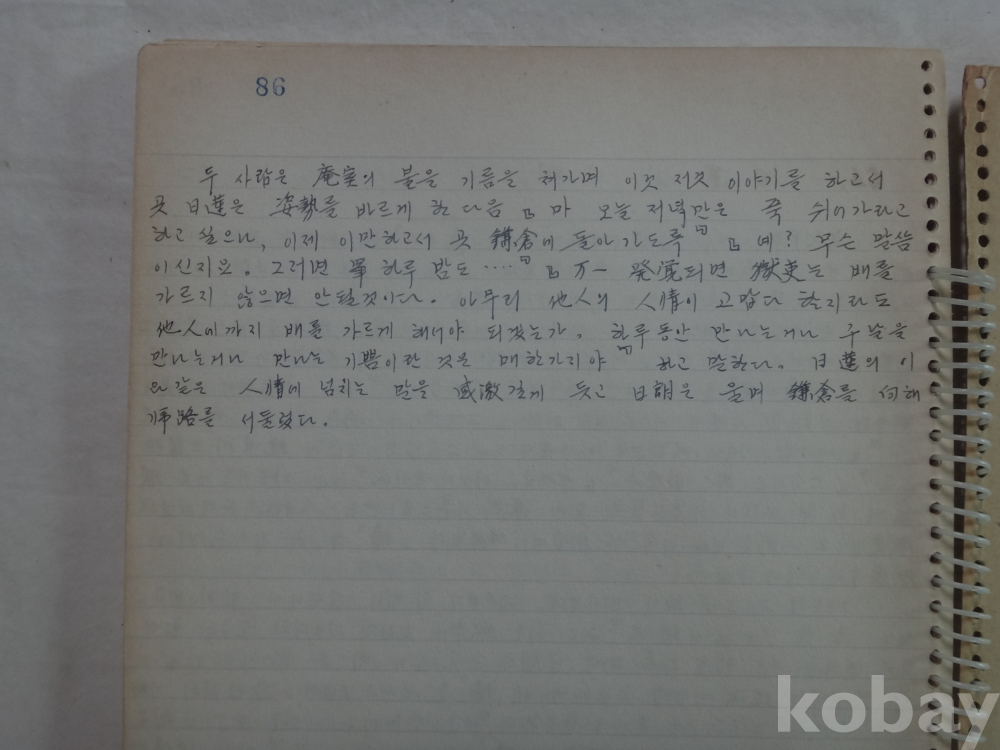 86
두 사람은 庵室의 불을 기름을 쳐가며 이것 저것 이야기를 하고서
곳 日蓮은 姿勢를 바르게 한 다음 『마 오늘 저녁만은 쭉 쉬어가라고
하고 싶으나, 이제 이만하고서 곳 鎌倉에 돌아가도록』 『네? 무슨 말씀
이신지요. 그러면 單 하루 밤도 ‥‥』 『万一 発覚되면 獄吏는 배를
가르지 않으면 안될것이다. 아무리 他人의 人情이 고맙다 할지라도
他人에까지 배를 가르게 해서야 되겠는가, 하루동안 만나는거나 구날을
만나는거나 만나는 기쁨이란 것은 매한가지야』 하고 말한다. 日蓮의 이
와같은 人情에 넘치는 말을 感激깊게 듯고 日朗은 울며 鎌倉를 向해
帰路를 서둘렀다.
kobay